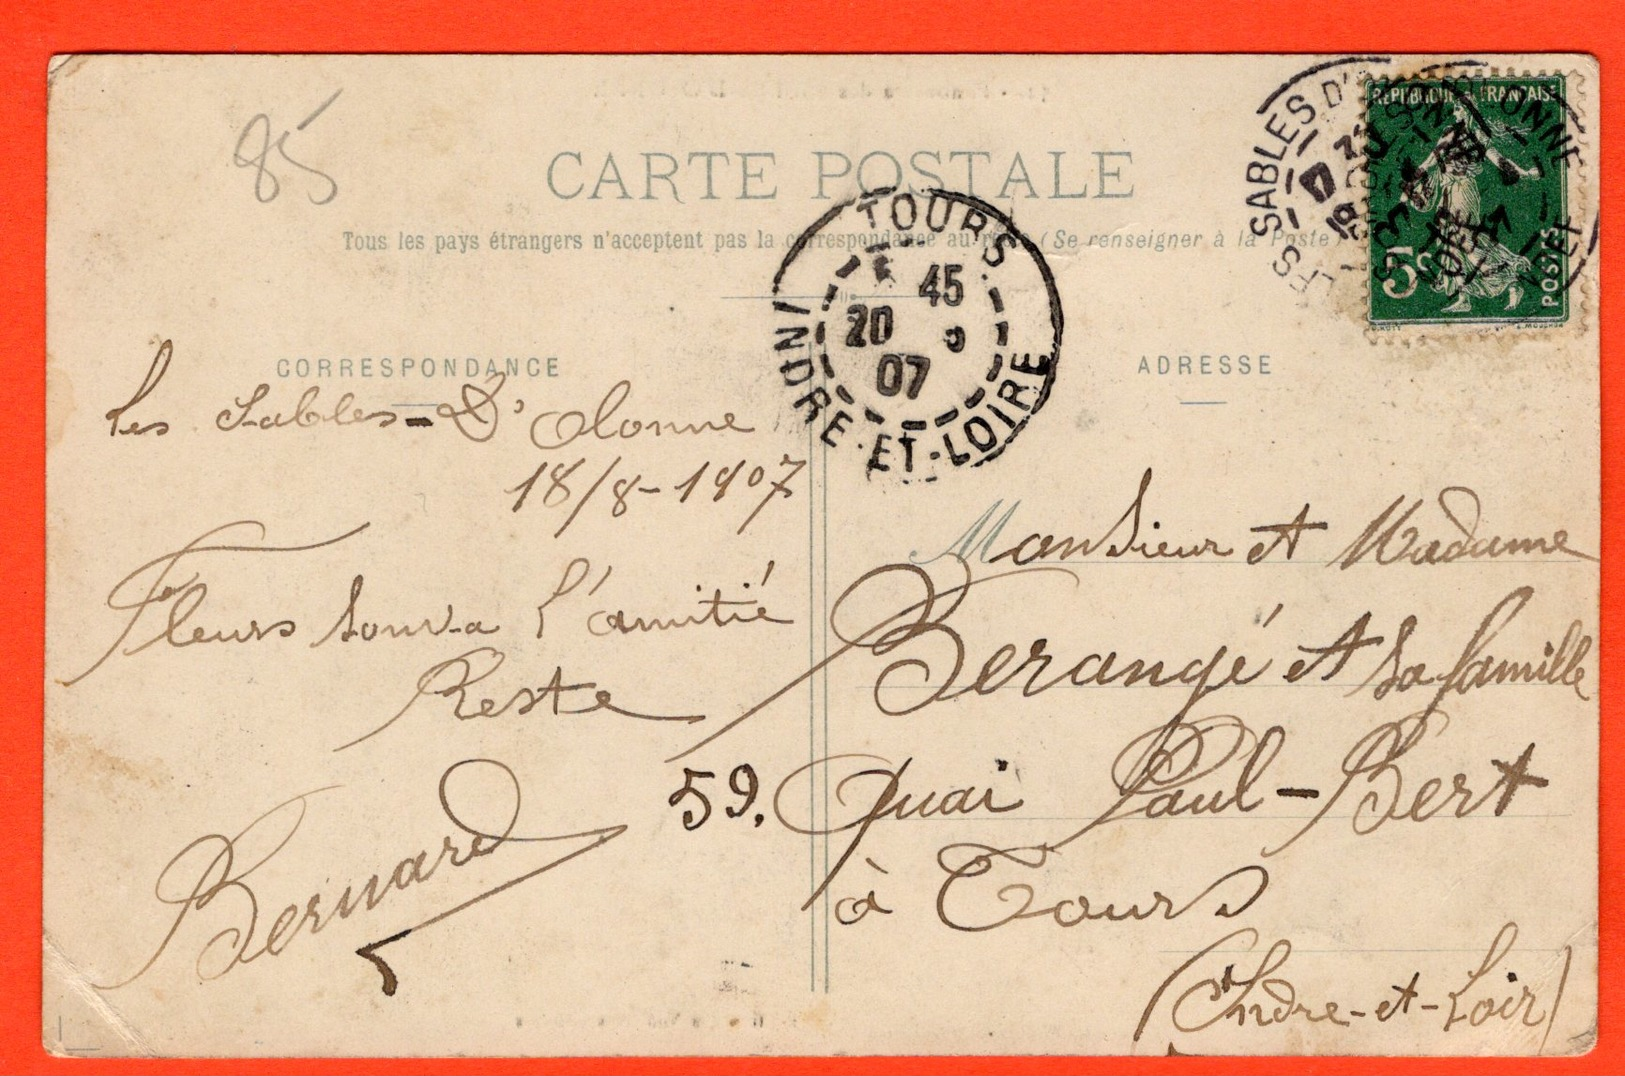 85
CARTE POSTALE
Tous les pays étrangers n'acceptent pas la correspondance au recto (Se renseigner à la Poste)
REPUBLIQUE FRANÇAISE
5c
POSTES
LES SABLES D'OLONNE
TOURS
45
20 8
07
INDRE-ET-LOIRE
CORRESPONDANCE
Les Sables-D'Olonne
18/8-1907
Fleurs l'amitié
Reste
Bernard
ADRESSE
Monsieur et Madame
Berangé et sa famille
59. Quai Paul-Bert
à Tours
(Indre-et-Loir)